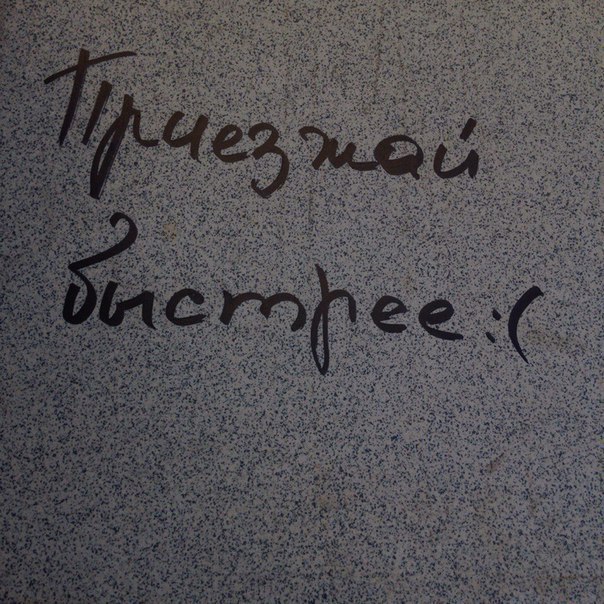 Приезжай
быстрее :(